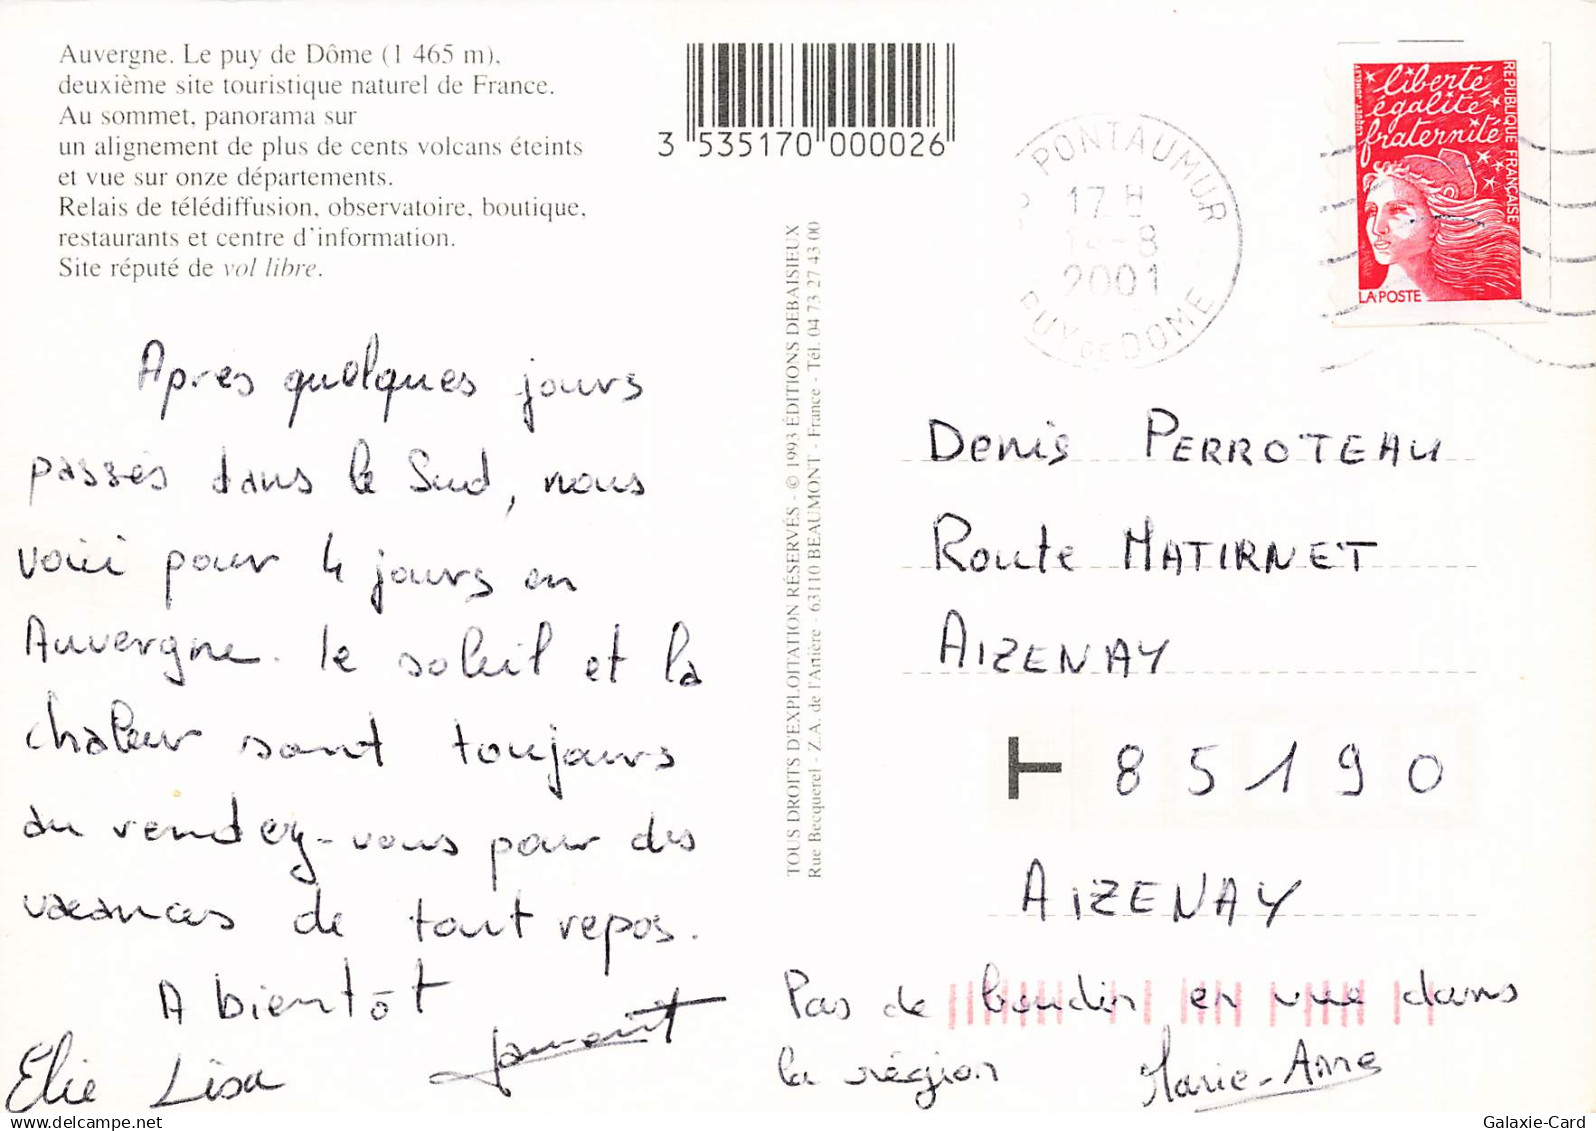 Auvergne. Le puy de Dôme (1 465 m),
deuxième site touristique naturel de France.
Au sommet, panorama sur
un alignement de plus de cents volcans éteints
et vue sur onze départements.
Relais de télédiffusion, observatoire, boutique,
restaurants et centre d'information.
Site réputé de vol libre.
3 535170 000026
PONTAUMUR
17 H
8
2001
PUY DE DOME
liberté
égalité
fraternité
REPUBLIQUE FRANÇAISE
LA POSTE
Apres quelques jours
passés dans le Sud, nous
voici pour 4 jours en
Auvergne. le soleil et la
chaleur sont toujours
au rendez-vous pour des
vacances de tout repos.
A bientôt
Elie Lisa
TOUS DROITS D'EXPLOITATION RÉSERVÉS - © 1993 ÉDITIONS DEBAISIEUX
Rue Becquerel - Z.A. de l'Artière - 63110 BEAUMONT - France - Tél. 04 73 27 43 00
Denis PERROTEAU
Route MATIRNET
AIZENAY
85190
AIZENAY
Pas de boudin en vue dans
la région
Marie-Anne
www.delcampe.net
Galaxie-Card